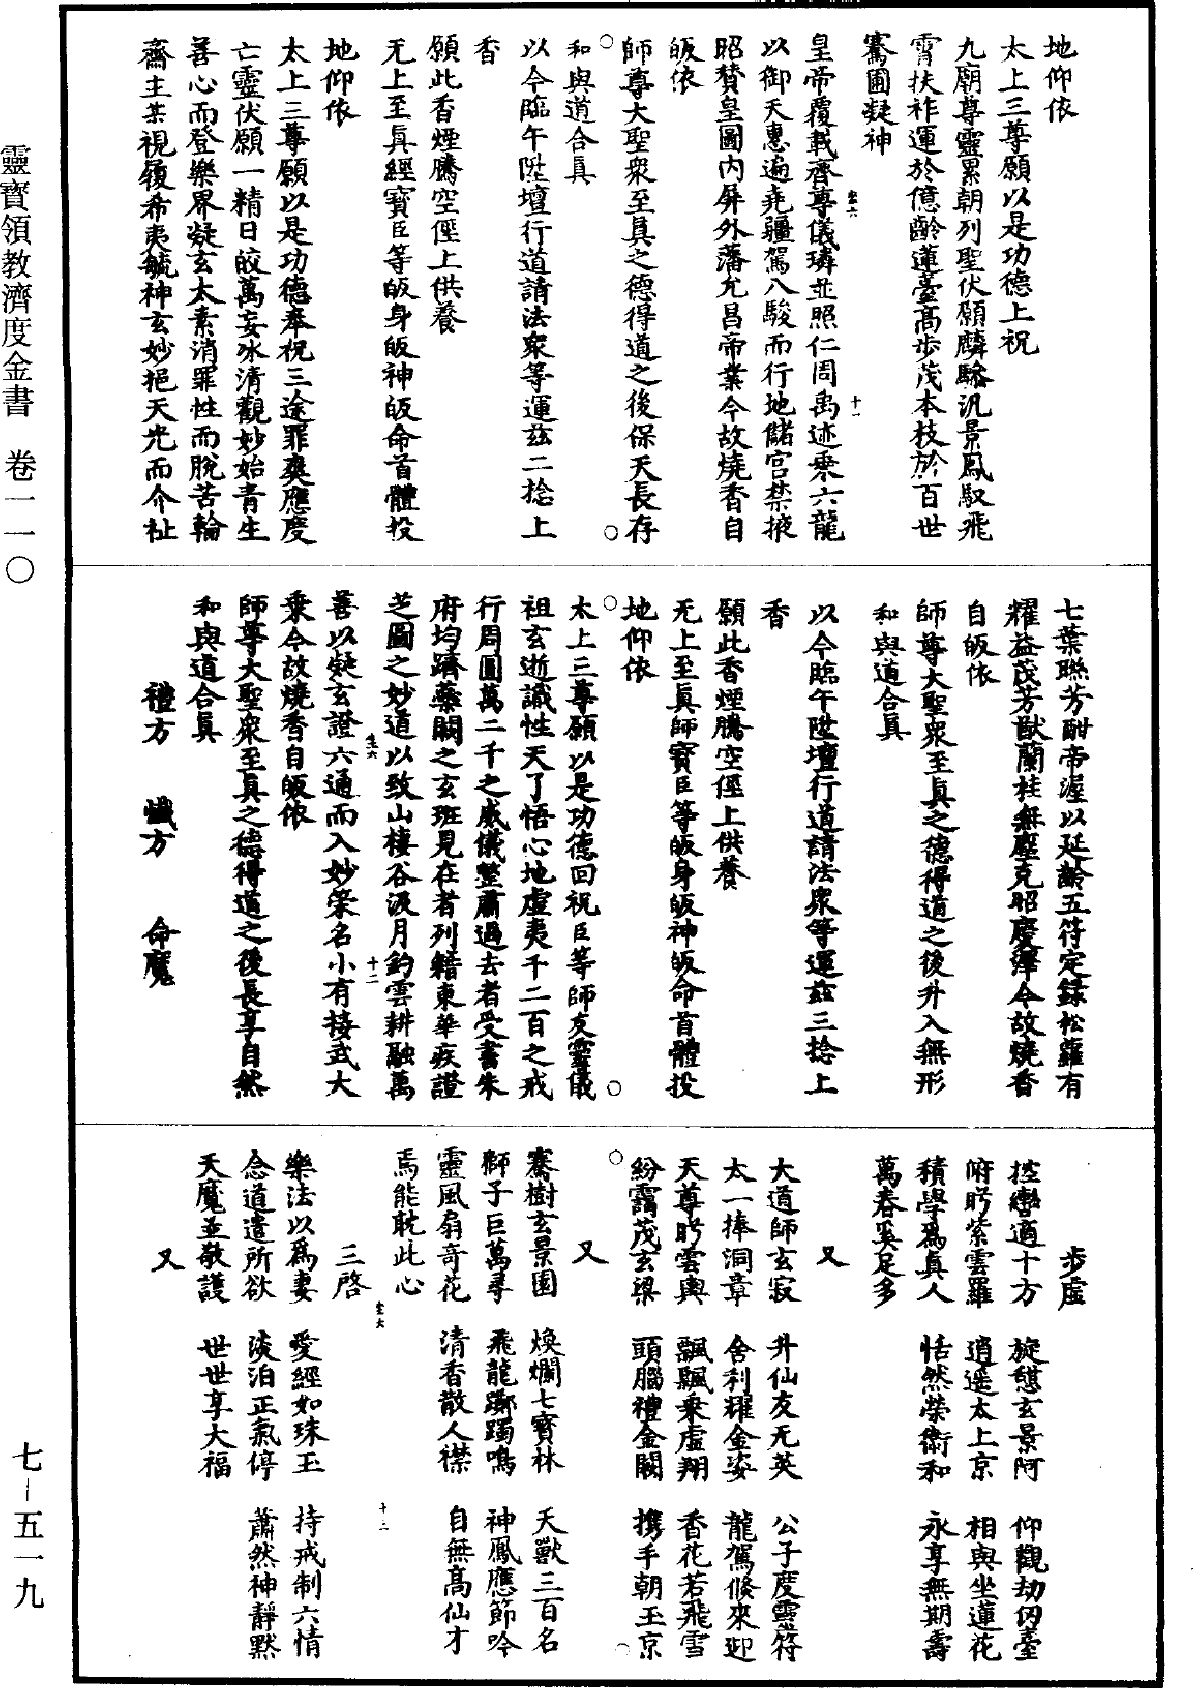 地仰依
太上三尊願以是功德上祝
九廟尊靈累朝列聖伏願麟輅汎景鳳馭飛
霄扶祚運於億齡蓮臺高步茂本枝於百世
騫圃凝神
皇帝覆載齊尊儀璘並照仁周禹迹乘六龍
以御天惠遍堯疆駕八駿而行地儲宮禁掖
昭贊皇圖內屏外藩允昌帝業今故燒香自
皈依
師尊大聖衆至眞之德得道之後保天長存
和與道合眞
以今臨午陞壇行道請法衆等運茲二捻上
香
願此香煙騰空徑上供養
无上至眞經寶臣等皈身皈神皈命首體投
地仰依
太上三尊願以是功德奉祝三途罪爽應度
亡靈伏願一精日皎萬妄冰清觀妙始青生
善心而登樂界凝玄太素消罪性而脫苦輪
齋主某視履希夷毓神玄妙挹天光而介祉
七葉聯芳酣帝渥以延齡五符定錄松蘿有
耀益茂芳猷蘭桂無塵克昭慶澤今故燒香
自皈依
師尊大聖衆至眞之德得道之後升入無形
和與道合眞
以今臨午陞壇行道請法衆等運茲三捻上
香
願此香煙騰空徑上供養
无上至眞師寶臣等皈身皈神皈命首體投
地仰依
太上三尊願以是功德回祝臣等師友靈儀
祖玄逝識性天了悟心地虛夷千二百之戒
行周圓萬二千之威儀整肅過去者受書朱
府均躋藥闕之玄班見在者列籍東華疾證
芝圖之妙道以致山棲谷汲月釣雲耕融萬
善以凝玄證六通而入妙策名小有接武大
乘今故燒香自皈依
師尊大聖衆至眞之德得道之後長享自然
和與道合眞
禮方　懺方　命魔
步虛
控轡適十方　旋憩玄景阿　仰觀劫仞臺
俯眄紫雲羅　逍遙太上京　相與坐蓮花
積學爲眞人　恬然榮衛和　永享無期壽
萬春奚足多
又
大道師玄寂　升仙友无英　公子度靈符
太一捧洞章　舍利耀金姿　龍駕倏來迎
天尊眄雲輿　飄飄乘虛翔　香花若飛雪
紛靄茂玄梁　頭腦禮金闕　携手朝玉京
又
騫樹玄景園　煥爛七寶林　天獸三百名
獅子巨萬尋　飛龍躑躅鳴　神鳳應節吟
靈風扇奇花　清香散人襟　自無高仙才
焉能耽此心
三啓
樂法以爲妻　愛經如珠玉　持戒制六情
念道遣所欲　淡泊正氣停　蕭然神靜默
天魔並敬護　世世享大福
又
靈寶領教濟度金書　卷一一〇
七－五一九